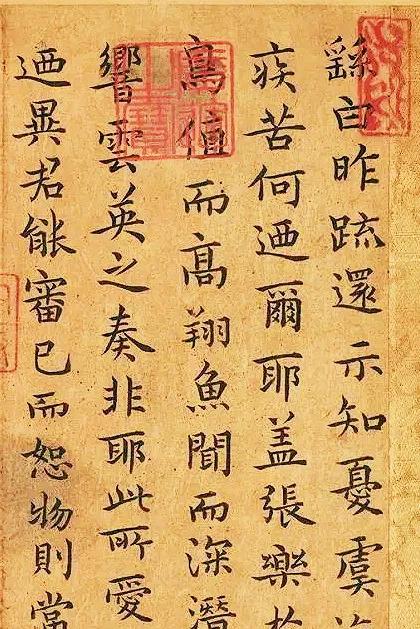 繇白昨疏還示知憂虞
疾苦何迺爾耶盖張樂於
鳥值而高翔魚聞而深潛
響雲英之奏非耶此所愛
迺異君能審己而恕物則常